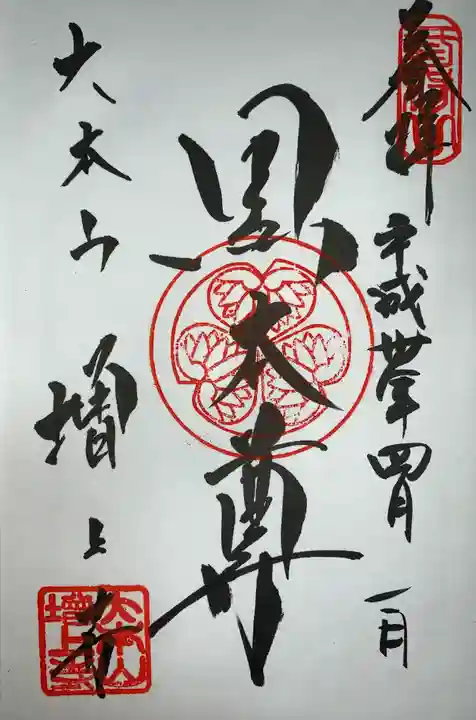 奉拝
平成卅年四月一日
黒本尊
大本山
増上寺
大本山
増上寺